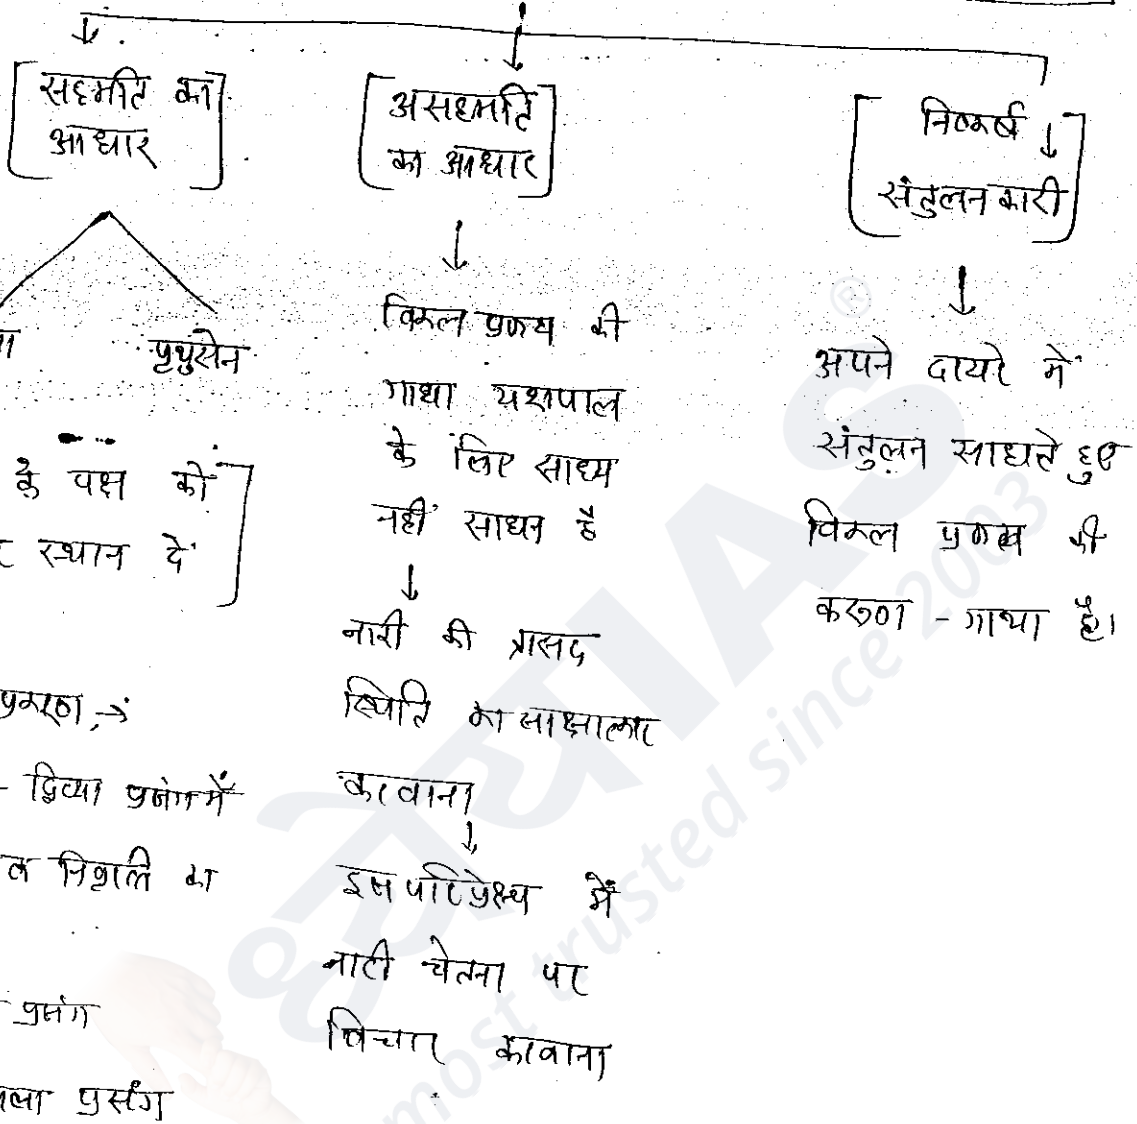 सहमति का
आधार
पृथुसेन
के पक्ष को
स्थान दें
प्रकरण
- दिव्या प्रसंग में
का
प्रसंग
प्रसंग
असहमति
का आधार
विफल प्रणय की
गाथा यशपाल
के लिए साध्य
नहीं साधन है
नारी की त्रासद
स्थिति का साक्षात्कार
करवाना
इस परिप्रेक्ष्य में
नारी चेतना पर
विचार करवाना
निष्कर्ष
संतुलनकारी
अपने दायरे में
संतुलन साधते हुए
विफल प्रणय की
करुण - गाथा है।
ध्येय IAS
®
most trusted since 2003